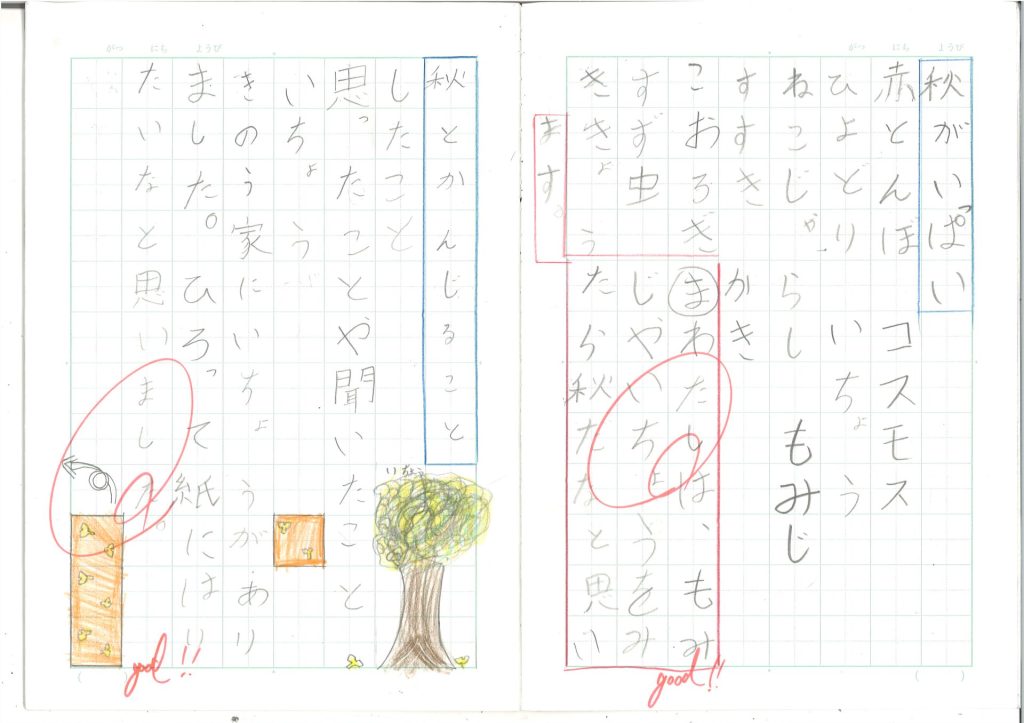 がつ にち ようび
秋がいっぱい
赤とんぼ コスモス
ひよどり いちょう
ねこじゃらし もみじ
すすき かき
こおろぎ まわたしは、もみ
すず虫 じやいちょうをみ
ききょう たら秋だなと思い
ます。
good!!
がつ にち ようび
秋とかんじること
したこと
いちょう
思ったことや聞いたこと
いちょう
きのう家にいちょうがあり
ました。ひろって紙にはり
たいなと思いました。
good!!